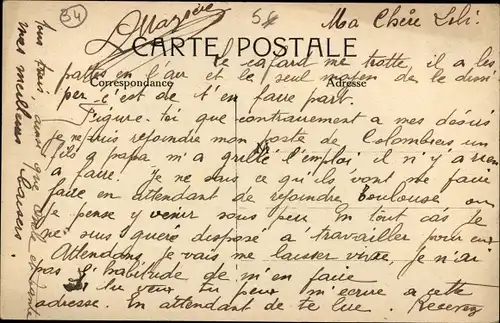 34
5
Ma Chère Lili.
CARTE POSTALE
Correspondance
Adresse
le cafard me trotte, il a les
pattes en l'air et le seul moyen de le dissi
per c'est de t'en faire part.
Figure-toi que contrairement a mes désirs
je ne puis rejoindre mon poste de Colombiers un
fils a papa m'a grillé l'emploi il n'y a rien
a faire. Je ne sais ce qu'ils vont me faire
faire en attendant de rejoindre Toulouse ou
je pense y venir sous peu En tout cas je
ne suis guère disposé a travailler pour eux
Attendons je vais me laisser vivre, je n'ai
pas l'habitude de m'en faire
Si tu veux tu peux m'écrire a cette
adresse. En attendant de te lire. Recevez
tous trois, ainsi que Oncle et tante
mes meilleurs Baisers.